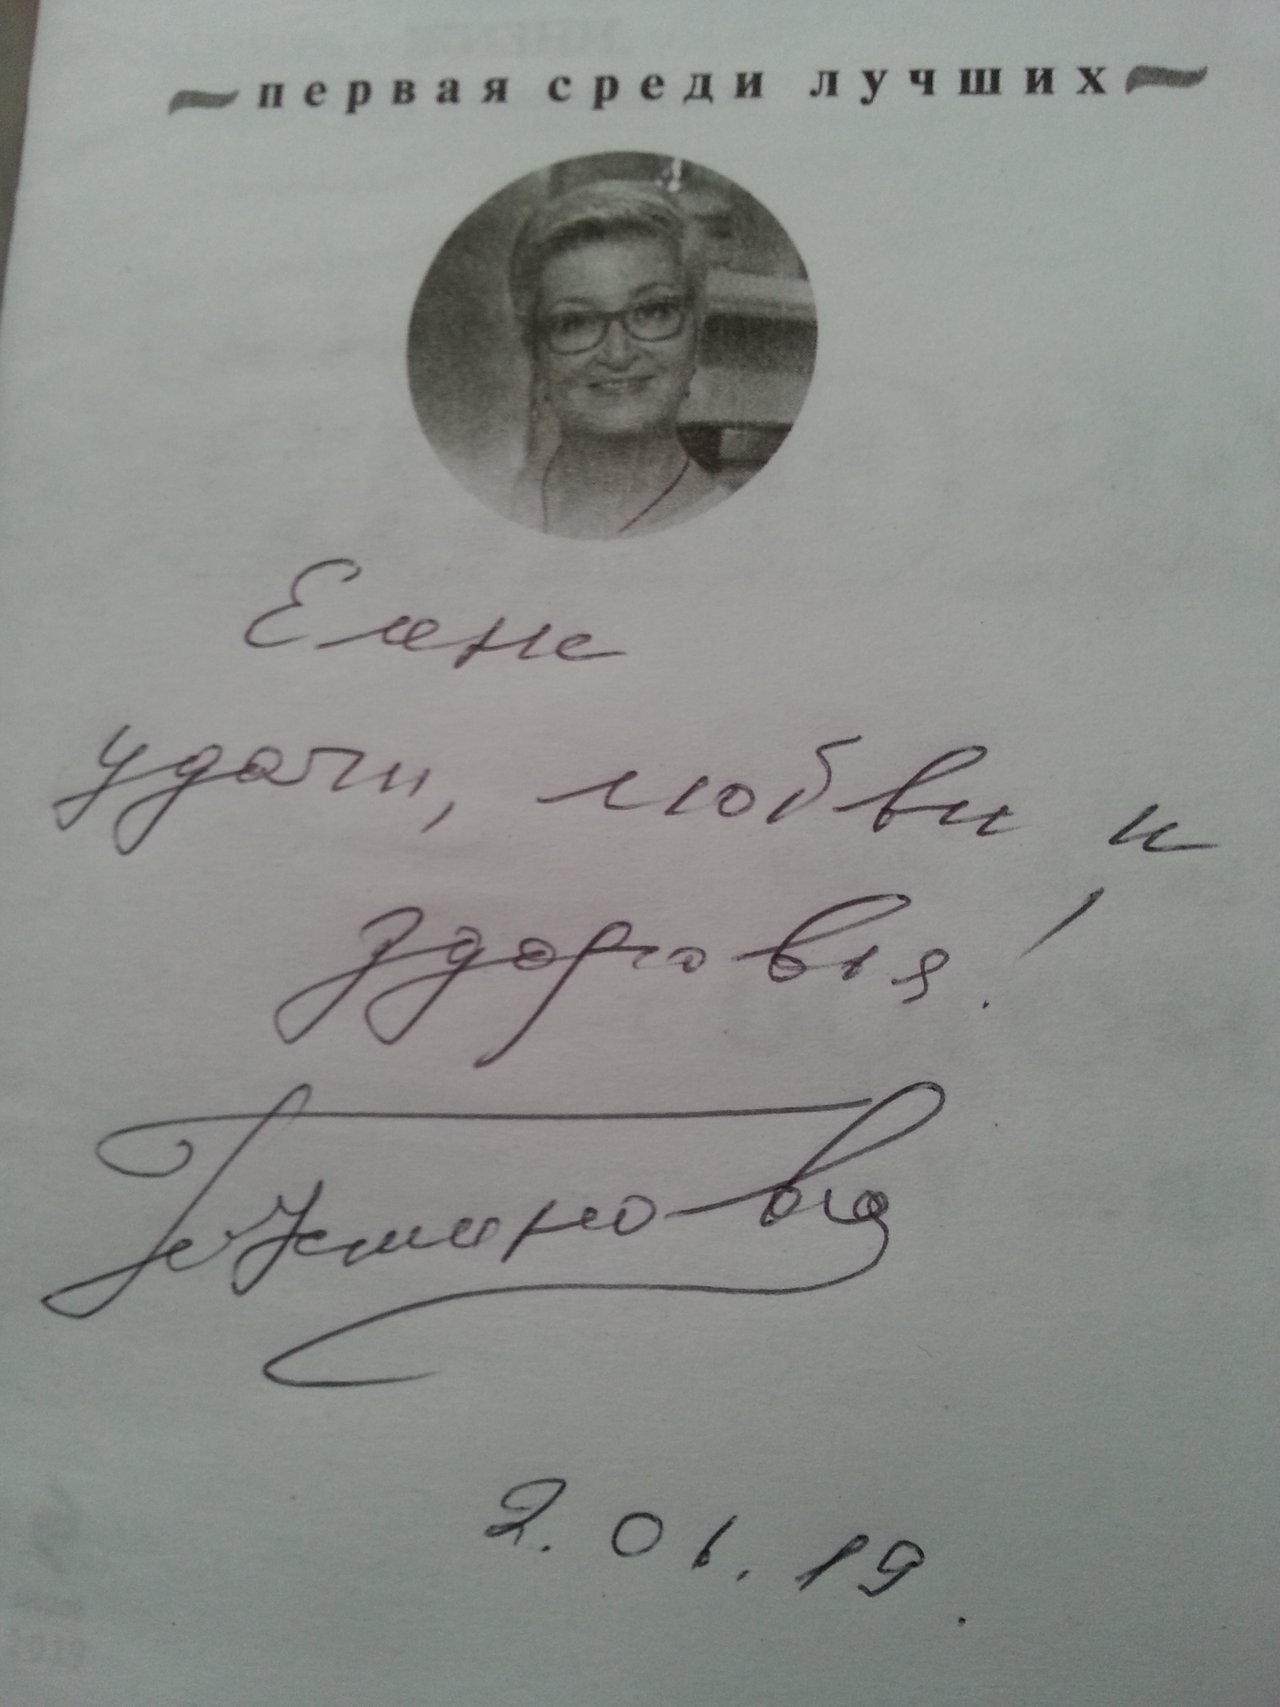 первая среди лучших
Елене
удачи, любви и
здоровья!
Т. Устинова
2.01.19.